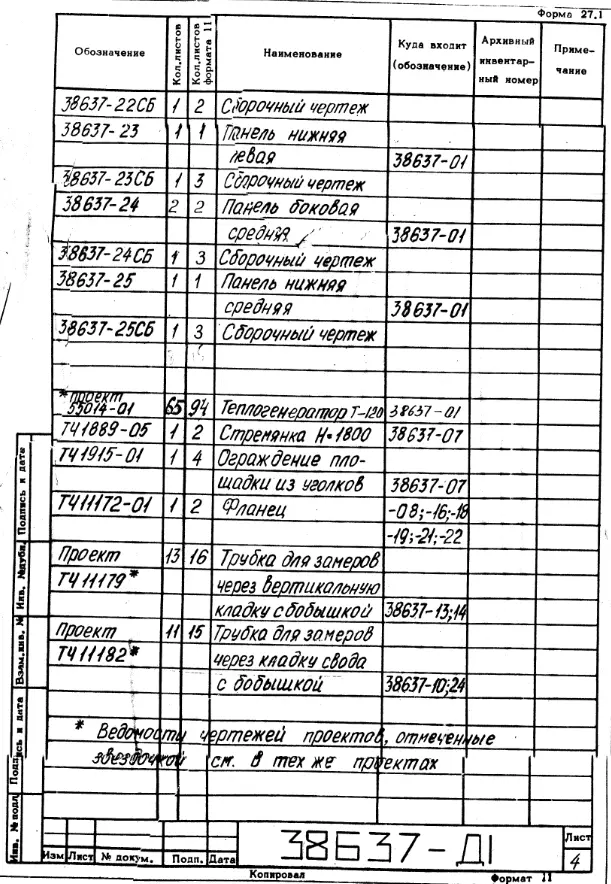 Форма 27.1
Обозначение Кол.листов Кол.листов формата 11 Наименование Куда входит (обозначение) Архивный инвентарный номер Примечание
38637-22СБ 1 2 Сборочный чертеж
38637-23 1 1 Панель нижняя
левая 38637-01
38637-23СБ 1 3 Сборочный чертеж
38637-24 2 2 Панель боковая
средняя 38637-01
38637-24СБ 1 3 Сборочный чертеж
38637-25 1 1 Панель нижняя
средняя 38637-01
38637-25СБ 1 3 Сборочный чертеж
*проект
55014-01 65 94 Теплогенератор Т-120 38637-01
ТЧ1889-05 1 2 Стремянка Н=1800 38637-07
ТЧ1915-01 1 4 Ограждение пло-
щадки из уголков 38637-07
ТЧ11172-01 1 2 Фланец -08;-16;-18
-19;-21;-22
Проект 13 16 Трубка для замеров
ТЧ11179* через вертикальную
кладку с бобышкой 38637-13;14
Проект 11 15 Трубка для замеров
ТЧ11182* через кладку свода
с бобышкой 38637-10;24
* Ведомости чертежей проектов, отмеченные
звездочкой см. в тех же проектах
Инв. № подл. Подпись и дата Взам.инв. № Инв. №дубл. Подпись и дата
Изм Лист № докум. Подп. Дата
38637-Д1
Лист
4
Копировал Формат 11